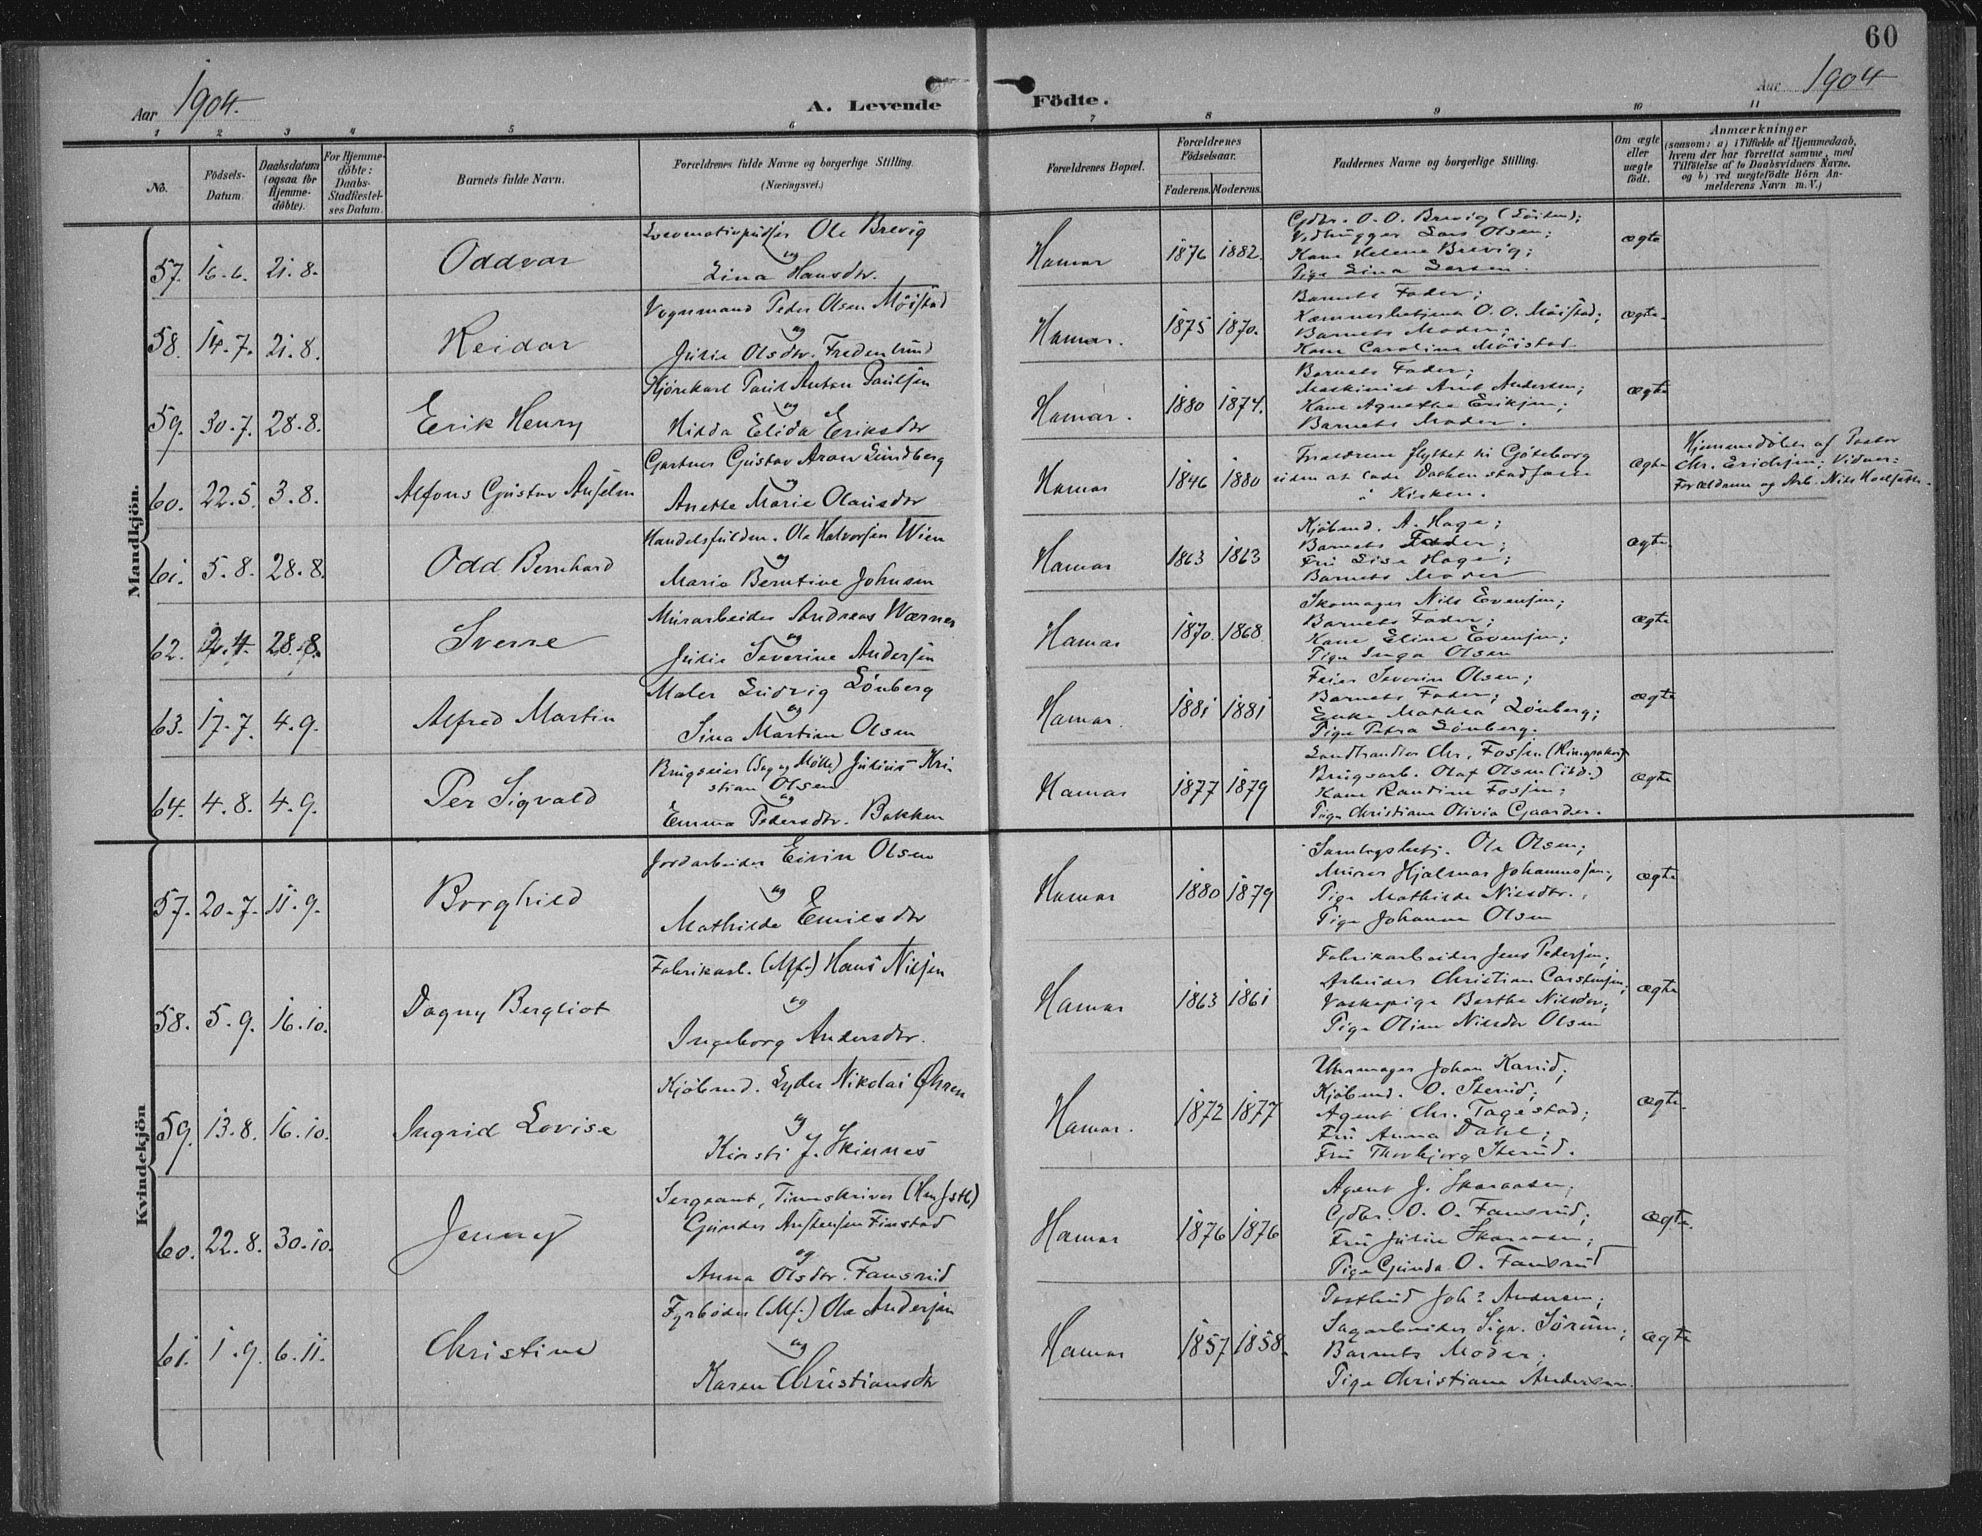 60
Aar 1904.
A. Levende Födte.
Aar 1904
1 2 3 4 5 6 7 8 9 10 11
No.
Födsels-Datum.
Daabsdatum (ogsaa for Hjemme-döbte).
For Hjemme-döbte: Daabs-Stadfæstel-ses Datum.
Barnets fulde Navn.
Forældrenes fulde Navne og borgerlige Stilling.
(Næringsvei.)
Forældrenes Bopæl.
Forældrenes Födselsaar.
Faderens. Moderens.
Faddernes Navne og borgerlige Stilling.
Om ægte eller uægte födt.
Anmærkninger
(saasom: a) i Tilfælde af Hjemmedaab, hvem der har forrettet samme, med Tilföielse af to Daabsvidners Navne, og b) ved uægtefödte Börn An-melderens Navn m. V.)
Mandkjön.
57. 16.6. 21.8. Oddvar
Locomotivpudser Ole Brevig
og
Lina Hansdtr.
Hamar 1876 1882.
Gdbr. O. O. Brevig (Löiten);
Vedhugger Lars Olsen;
Kone Helene Brevig;
Pige Lina Larsen.
ægte
58. 14.7. 21.8. Reidar
Vognmand Peder Olsen Möistad
og
Julie Olsdtr. Fredenlund
Hamar. 1875 1870.
Barnets Fader;
Kæmnerbetjent O. O. Möistad;
Barnets Moder;
Kone Caroline Möistad.
ægte.
59. 30.7. 28.8. Erik Henry
Kjörekarl Paul Anton Paulsen
og
Hilda Elida Eriksdtr
Hamar. 1880 1874.
Barnets Fader;
Maskinist Arnt Andersen;
Kone Agnethe Eriksen;
Barnets Moder.
ægte
60. 22.5. 3.8. Alfons Gustav Anselm
Gartner Gustav Aron Lundberg
og
Anette Marie Olausdtr
Hamar 1846 1880
Forældrene flyttet til Göteborg
uden at lade Daaben stadfæste
i Kirken.
ægte
Hjemmedöbt af Pastor
Chr. Erichsen; Vidner:
Forældrene og Arb. Nils
61. 5.8. 28.8. Odd Bernhard
Handelsfuldm. Ole Halvorsen Wien
og
Maria Berntine Johnsen
Hamar 1863 1863
Kjöbmd. A. Hage;
Barnets Fader;
Fru Lise Hage;
Barnets Moder
ægte.
62. 28.8. Sverre
Murarbeider Andreas Wærner
og
Julie Severine Andersen
Hamar 1870. 1868
Skomager Nils Evensen;
Barnets Fader;
Kone Eline Evensen;
Pige Inga Olsen
ægte
63. 17.7. 4.9. Alfred Martin
Maler Ludvig Lönberg
og
Lina Martine Olsen
Hamar. 1881 1881
Feier Severin Olsen;
Barnets Fader;
Enke Mathea Lönberg;
Pige Petra Lönberg.
ægte
64. 4.8. 4.9. Per Sigvald
Brugseier (Sag og Mölle) Julius Kri-
stian Olsen
og
Emma Pedersdtr. Bakken
Hamar 1877 1879
Landhandler Chr. Fossen (Ringsaker)
Brugsarb. Olaf Olsen (ibd.)
Kone Randine Fossen;
Pige Christiane Olivia Gaarder.
ægte
Kvindekjön
57. 20.7. 11.9. Borghild
Jordarbeider Eivin Olsen
og
Mathilde Emilsdtr
Hamar 1880 1879
Samlagsbetj. Ole Olsen;
Murer Hjalmar Johannesen;
Pige Mathilde Nilsdtr.;
Pige Johanne Olsen
ægte
58. 5.9. 16.10. Dagny Bergliot
Fabrikarb. (Mf.) Hans Nilsen
og
Ingeborg Andersdtr.
Hamar 1863 1861
Fabrikarbeider Jens Pedersen;
Arbeider Christian Carstensen;
Vaskepige Berthe Nilsdtr;
Pige Oline Nilsdtr Olsen
ægte
59. 13.8. 16.10. Ingrid Lovise
Kjöbmd. Lyder Nikolai Öhren
og
Kirsti J. Skinnes
Hamar. 1872 1877
Uhrmager Johan Karud;
Kjöbmd. O. Sterud;
Agent Chr. Tagestad;
Fru Anna Dahl;
Fru Thorbjorg Sterud.
ægte.
60. 22.8. 30.10. Jenny
Sergeant, Timeskriver (Ham. Jstb)
Gunder Austensen Finstad
og
Anna Olsdtr. Fansrud
Hamar 1876 1876
Agent J. Skaraasen;
Gdbr. O. O. Fansrud;
Fru Julie Skaraasen;
Pige Gunda O. Fansrud
ægte.
61. 1.9. 6.11. Christine
Fyrböder (Mf.) Ole Andersen
og
Karen Christiansdtr
Hamar 1857 1858.
Postbud Johs Andersen;
Sagarbeider Sigv. Sörum;
Barnets Moder;
Pige Christiane Andersen.
ægte